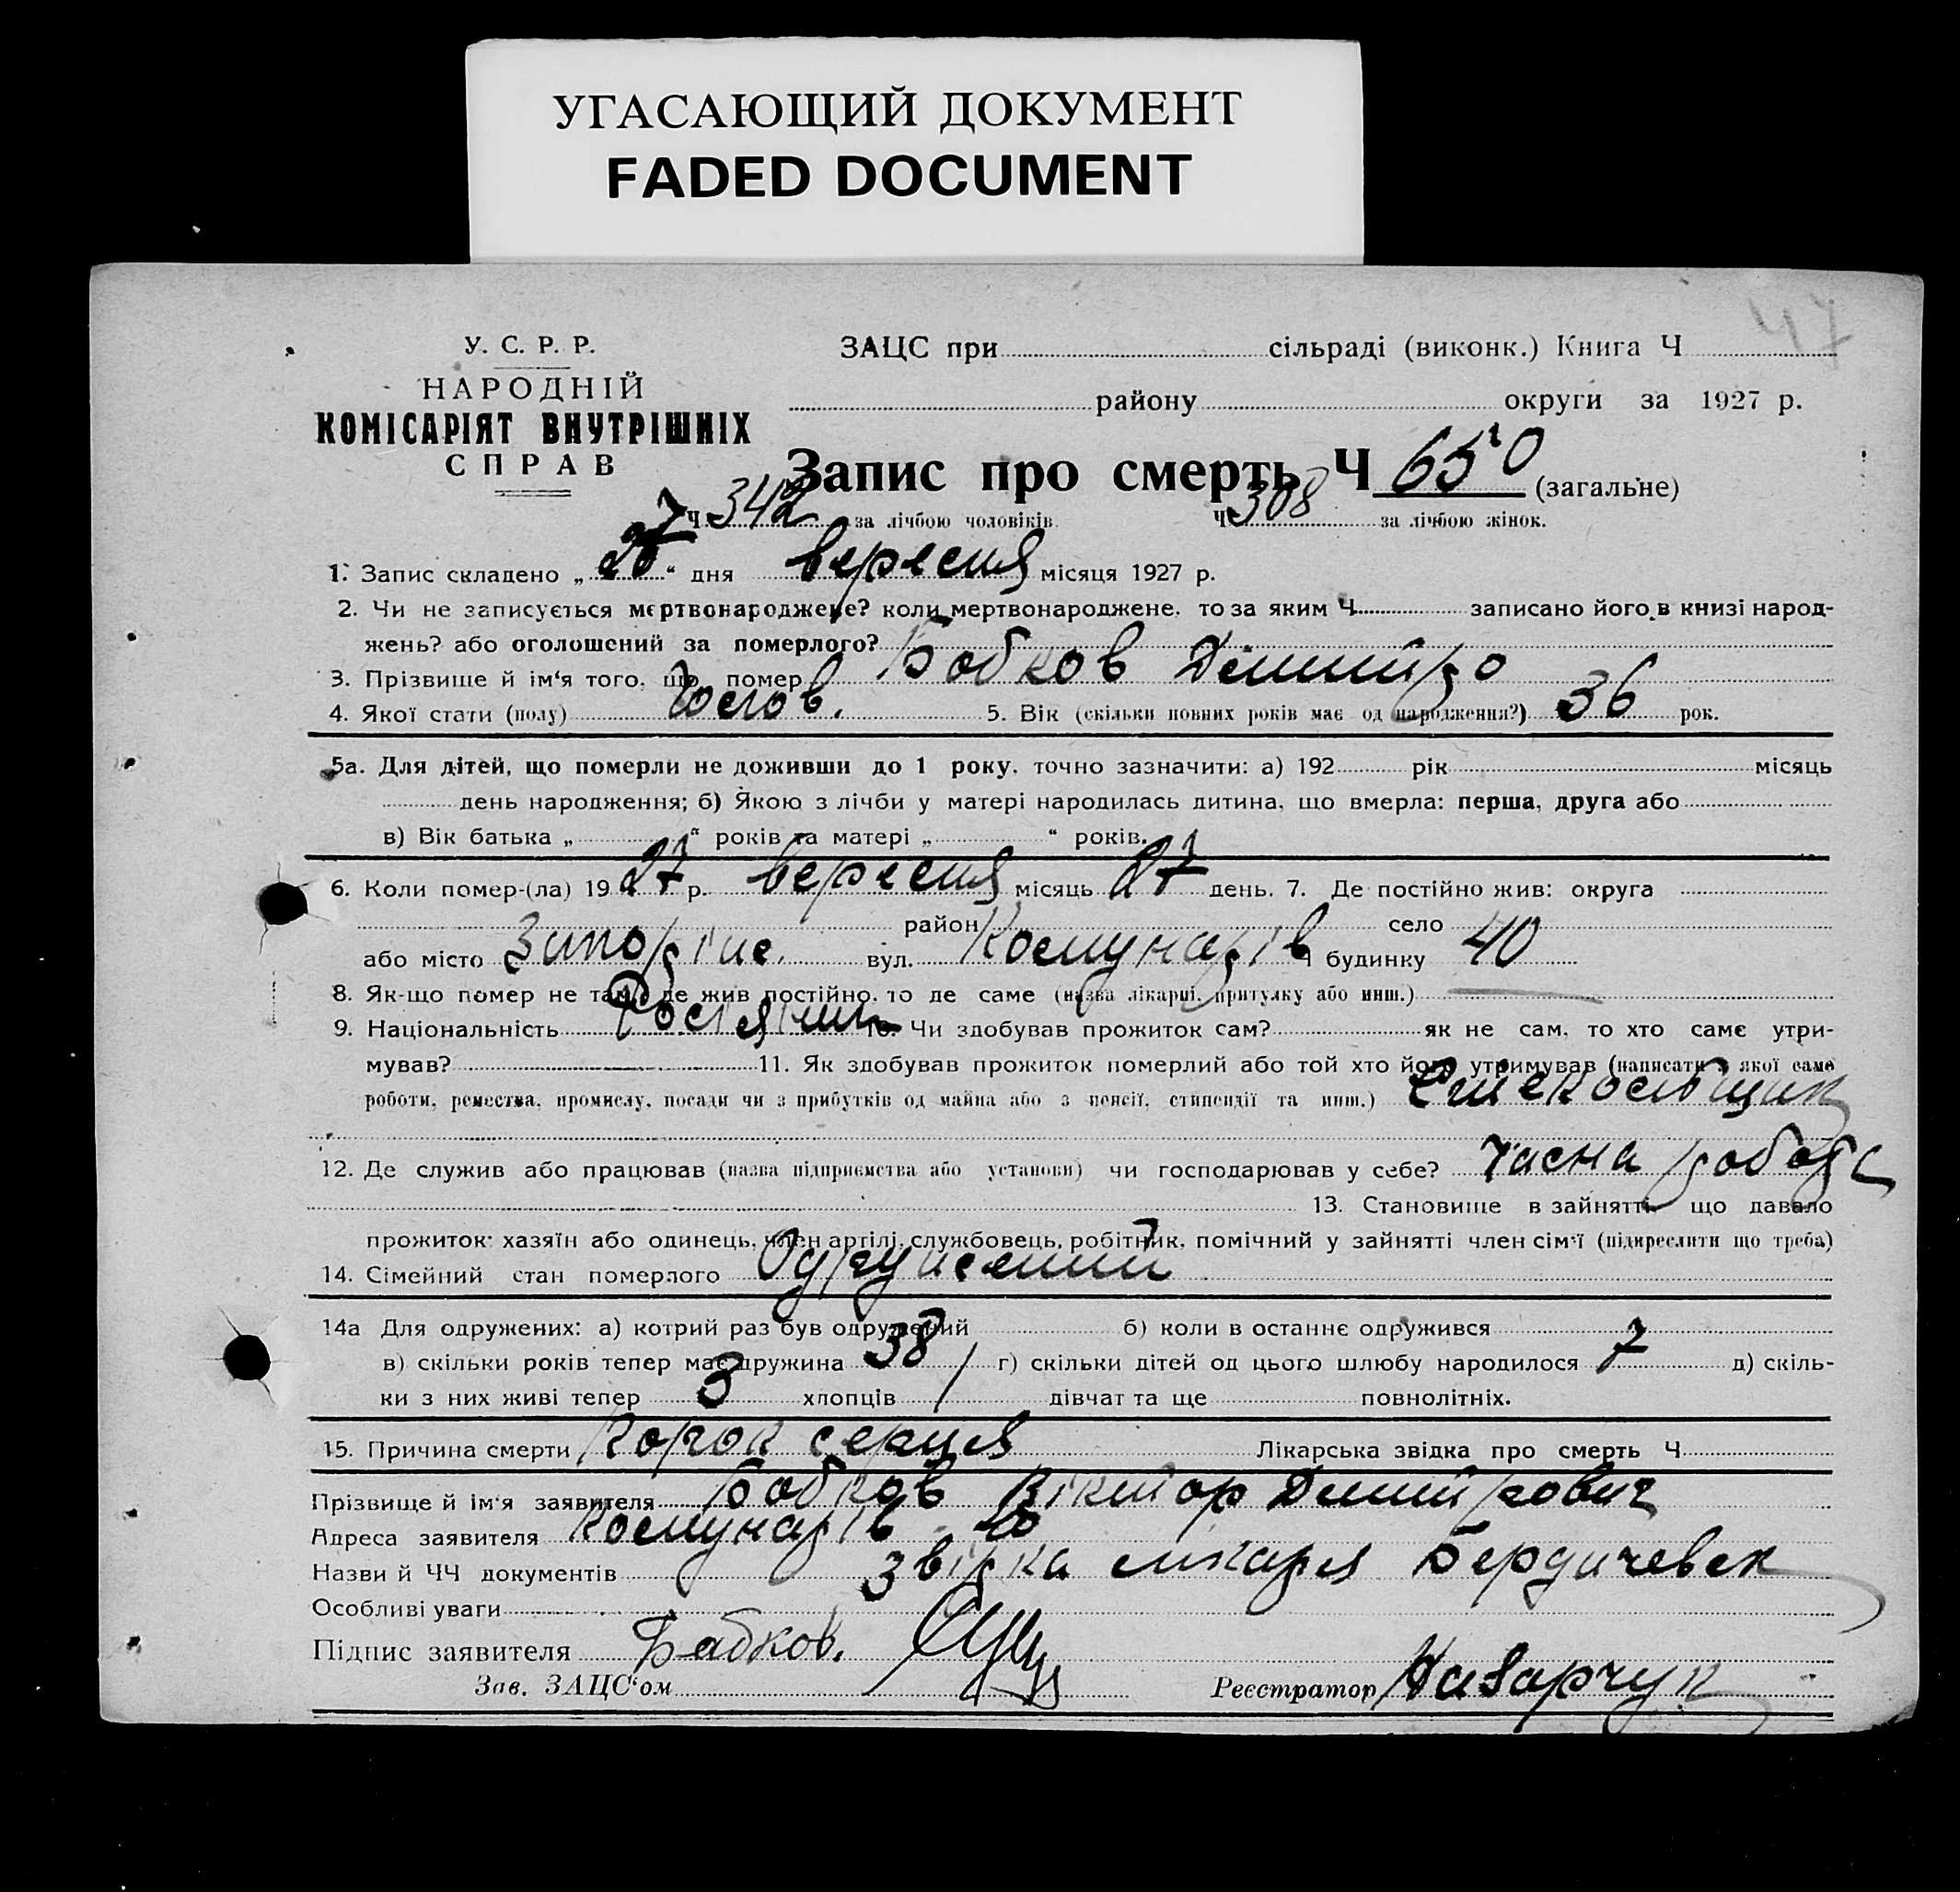 УГАСАЮЩИЙ ДОКУМЕНТ
FADED DOCUMENT
У. С. Р. Р.
НАРОДНІЙ
КОМІСАРІЯТ ВНУТРІШНІХ
СПРАВ
ЗАЦС при сільраді (виконк.) Книга Ч
району округи за 1927 р.
Запис про смерть Ч 650 (загальне)
Ч 342 за лічбою чоловіків Ч 308 за лічбою жінок.
1. Запис складено „ “ дня вересня місяця 1927 р.
2. Чи не записується мертвонароджене? коли мертвонароджене, то за яким Ч записано його в книзі народ-
жень? або оголошений за померлого?
3. Прізвище й ім‘я того, що помер Бобков Дмитро
4. Якої стати (полу) Чолов. 5. Вік (скільки повних років має од народження?) 36 рок.
5а. Для дітей, що померли не доживши до 1 року, точно зазначити: а) 192 рік місяць
день народження; б) Якою з лічби у матері народилась дитина, що вмерла: перша, друга або
в) Вік батька „ “ років та матері „ “ років.
6. Коли помер-(ла) 1927 р. вересня місяць 27 день. 7. Де постійно жив: округа
район село
або місто Запоріже вул. Комунарів Ч будинку 40
8. Як-що помер не там, де жив постійно, то де саме (назва лікарні, притулку або инш.)
9. Національність Росіянин 10. Чи здобував прожиток сам? як не сам, то хто саме утри-
мував? 11. Як здобував прожиток померлий або той хто його утримував (написати з якої саме
роботи, ремества, промислу, посади чи з прибутків од майна або з пенсії, стипендії та инш.) Стекольщик
12. Де служив або працював (назва підприємства або установи) чи господарював у себе? Часна робота
13. Становище в зайнятті, що давало
прожиток: хазяїн або одинець, член артілі, службовець, робітник, помічний у зайнятті член сім‘ї (підкреслити що треба)
14. Сімейний стан померлого Одружений
14а Для одружених: а) котрий раз був одружений б) коли в останнє одружився
в) скільки років тепер має дружина 38 г) скільки дітей од цього шлюбу народилося 7 д) скіль-
ки з них живі тепер 3 хлопців 1 дівчат та ще повнолітніх.
15. Причина смерти Порок серця Лікарська звідка про смерть Ч
Прізвище й ім‘я заявителя Бобков Віктор Дмитрович
Адреса заявителя Комунарів 40
Назви й ЧЧ документів Звідка лікаря Бердичевск
Особливі уваги
Підпис заявителя Бабков.
Зав. ЗАЦС‘ом Реєстратор Назарчук